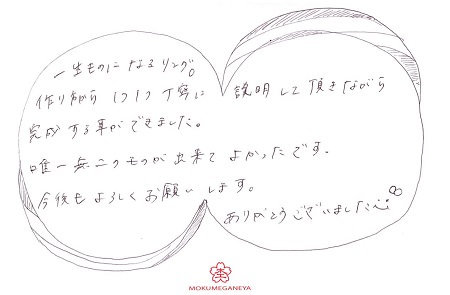 一生ものになるリング。
作りながら 1つ1つ丁寧に 説明して頂きながら
完成する事ができました。
唯一無二のものが出来て よかったです。
今後もよろしくお願いします。
ありがとうございました
MOKUMEGANEYA